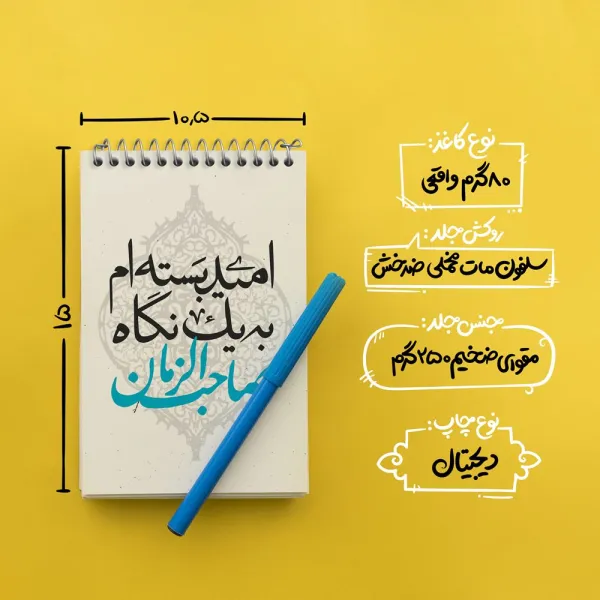 ۱۰٫۵
۱۵
امید بسته‌ام
به یک نگاه
صاحب الزمان
نوع کاغذ:
۸۰ گرم واقعی
روکش جلد:
سلفون مات مخملی ضدخش
جنس جلد:
مقوای ضخیم ۲۵۰ گرم
نوع چاپ:
دیجیتال